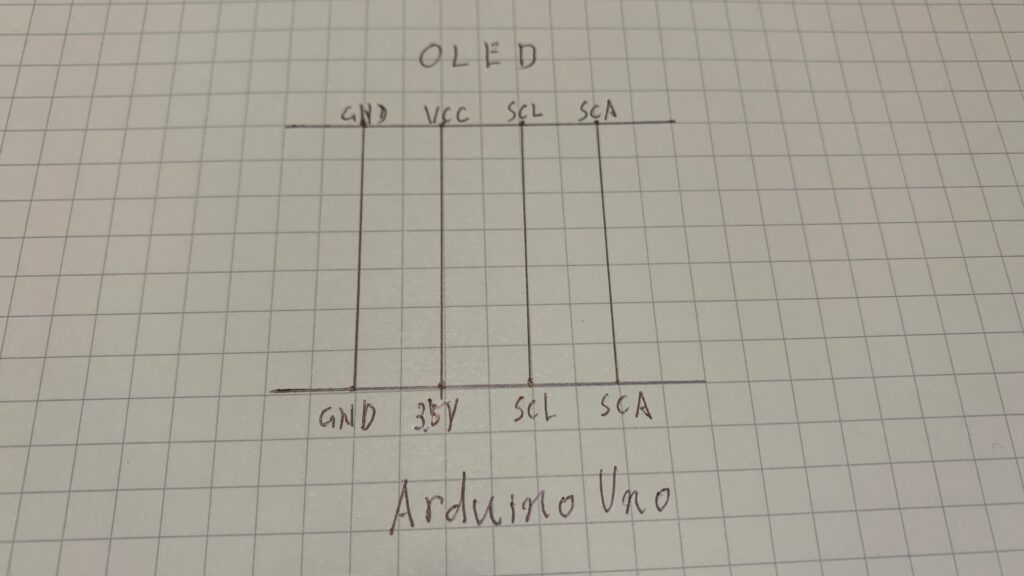 OLED
GND VCC SCL SCA
GND 3.5V SCL SCA
Arduino Uno